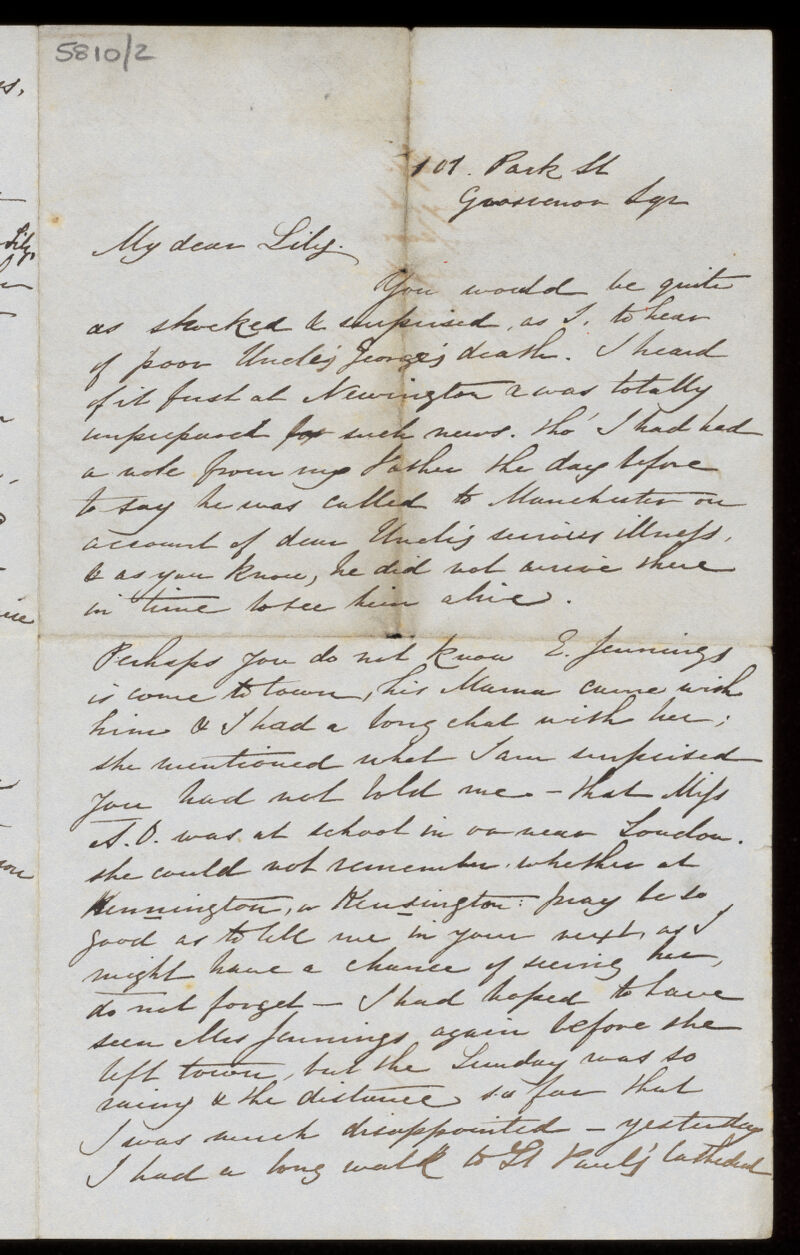 5810/2
101. Park St
Grosvenor Sqr
My dear Lily.
You would be quite
as shocked & surprised, as I. to hear
of poor Uncle's George's death. I heard
of it first at Newington & was totally
unprepared for such news. tho' I had had
a note from my Father the day before
to say he was called to Manchester on
account of dear Uncle's serious illness,
& as you know, he did not arrive there
in time to see him alive.
Perhaps you do not know E. Jennings
is come to town, his Mama came with
him & I had a long chat with her;
she mentioned what I am surprised
you had not told me - that Miss
A. O. was at school in or near London.
she could not remember whether at
Kennington, or Kensington: pray be so
good as to tell me in your next, as I
might have a chance of seeing her,
do not forget - I had hoped to have
seen Mrs Jennings again before she
left town, but the Sunday was so
rainy & the distance so far that
I was much disappointed - yesterday
I had a long walk to St Paul's Cathedral